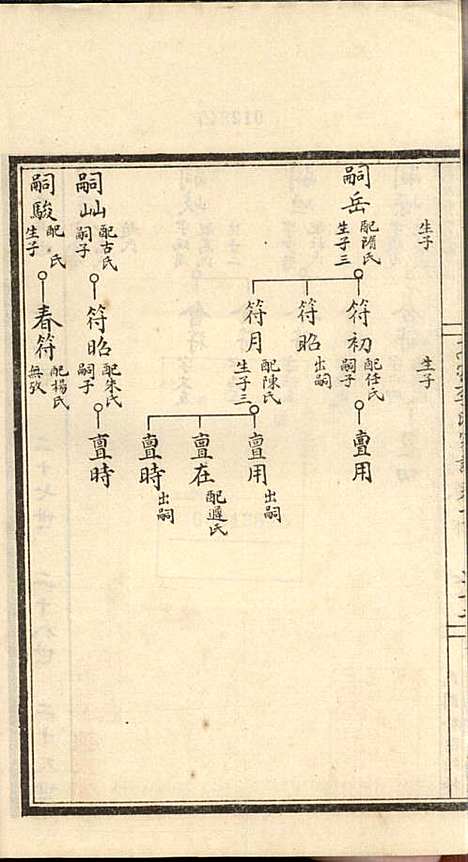 生子
生子
嗣岳
配隋氏
生子三
符初
配任氏
嗣子
亶用
符昭
出嗣
符月
配陳氏
生子三
亶用
出嗣
亶在
配遲氏
亶時
出嗣
嗣山
配古氏
嗣子
符昭
配朱氏
嗣子
亶時
嗣駿
配 氏
生子
春符
配楊氏
無攷